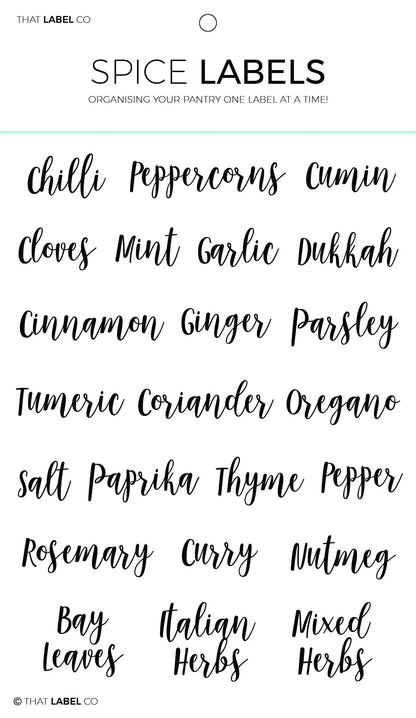 THAT LABEL CO
SPICE LABELS
ORGANISING YOUR PANTRY ONE LABEL AT A TIME!
Chilli Peppercorns Cumin
Cloves Mint Garlic Dukkah
Cinnamon Ginger Parsley
Tumeric Coriander Oregano
Salt Paprika Thyme Pepper
Rosemary Curry Nutmeg
Bay Italian Mixed
Leaves Herbs Herbs
© THAT LABEL CO